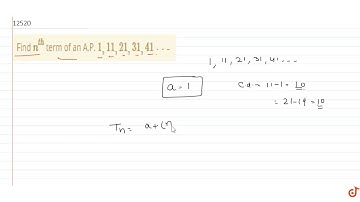 12520
Find nth term of an A.P. 1, 11, 21, 31, 41 ....
1, 11, 21, 31, 41 ...
a = 1
Cd = 11-1 = 10
= 21-11 = 10
Tn = a + (n